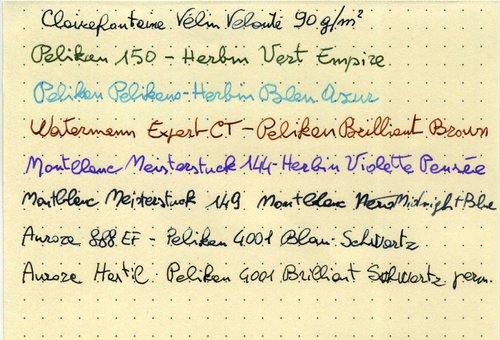 Clairefontaine Vélin Velouté 90 g/m²
Pelikan 150 - Herbin Vert Empire
Pelikan Pelikano - Herbin Bleu Azur
Watermann Expert CT - Pelikan Brilliant Brown
Montblanc Meisterstuck 144 - Herbin Violette Pensée
Montblanc Meisterstuck 149 Montblanc Midnight Blue
Aurora 888 EF - Pelikan 4001 Blau-Schwartz
Aurora Hastil. Pelikan 4001 Brilliant Schwartz perm.